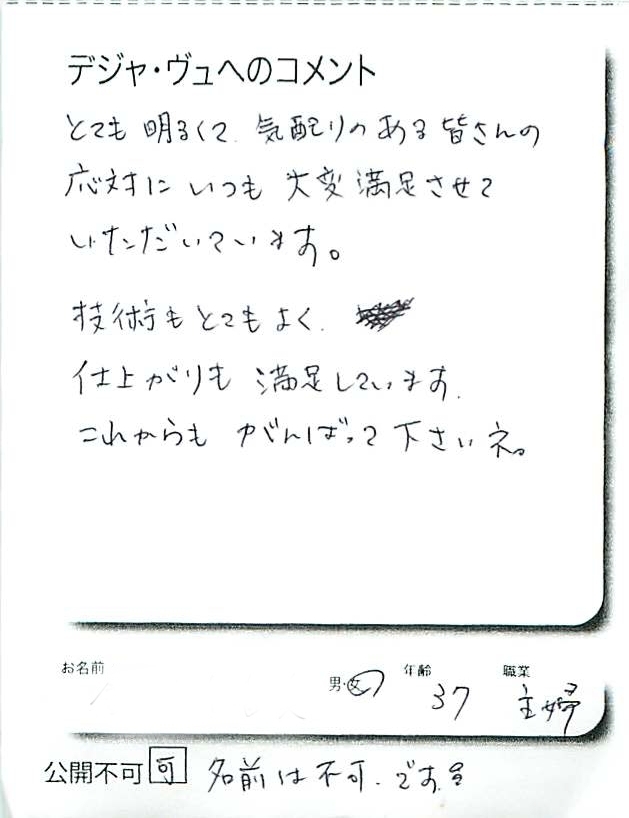 デジャ・ヴュへのコメント
とても明るくて、気配りのある皆さんの
応対にいつも大変満足させて
いただいています。
技術もとてもよく、
仕上がりも満足しています。
これからもがんばって下さいネ。
お名前 男・女 年齢 37 職業 主婦
公開不可 可 名前は不可、です。